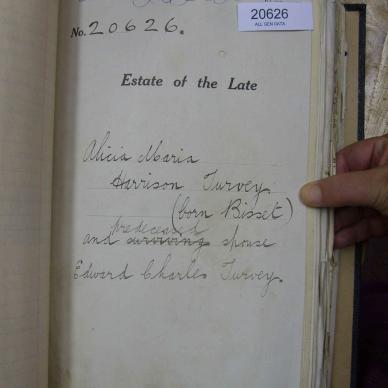 No. 20626.
20626
ALL GEN DATA
Estate of the Late
Alicia Maria
Harrison Turvey
(born Bisset)
predeceased
and surviving spouse
Edward Charles Turvey.